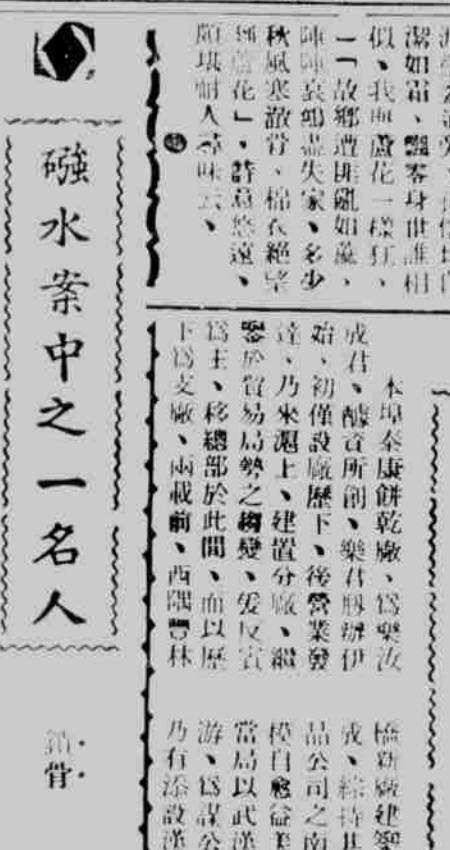 潔如霜、飄零身世誰相
似、我與蘆花一樣狂、
「故鄉遭匪亂如麻、
陣陣哀鴻盡失家、多少
秋風寒澈骨、棉衣絕望
蘆花」、詩意悠遠、
頗堪耐人尋味云、
磠水案中之一名人
骨
本埠泰康餅乾廠、爲樂汝
成君、醵資所創、樂君
始、初僅設廠歷下、後營業發
達、乃來滬上、建置分廠、繼
鑒於貿易局勢之趨變、爰反賓
爲主、移總部於此間、而以歷
下爲支廠、兩載前、西隅豐林
橋新廠建
成、綜持其
品公司之南
模自愈益美
當局以武漢
游、爲謀公
乃有添設漢